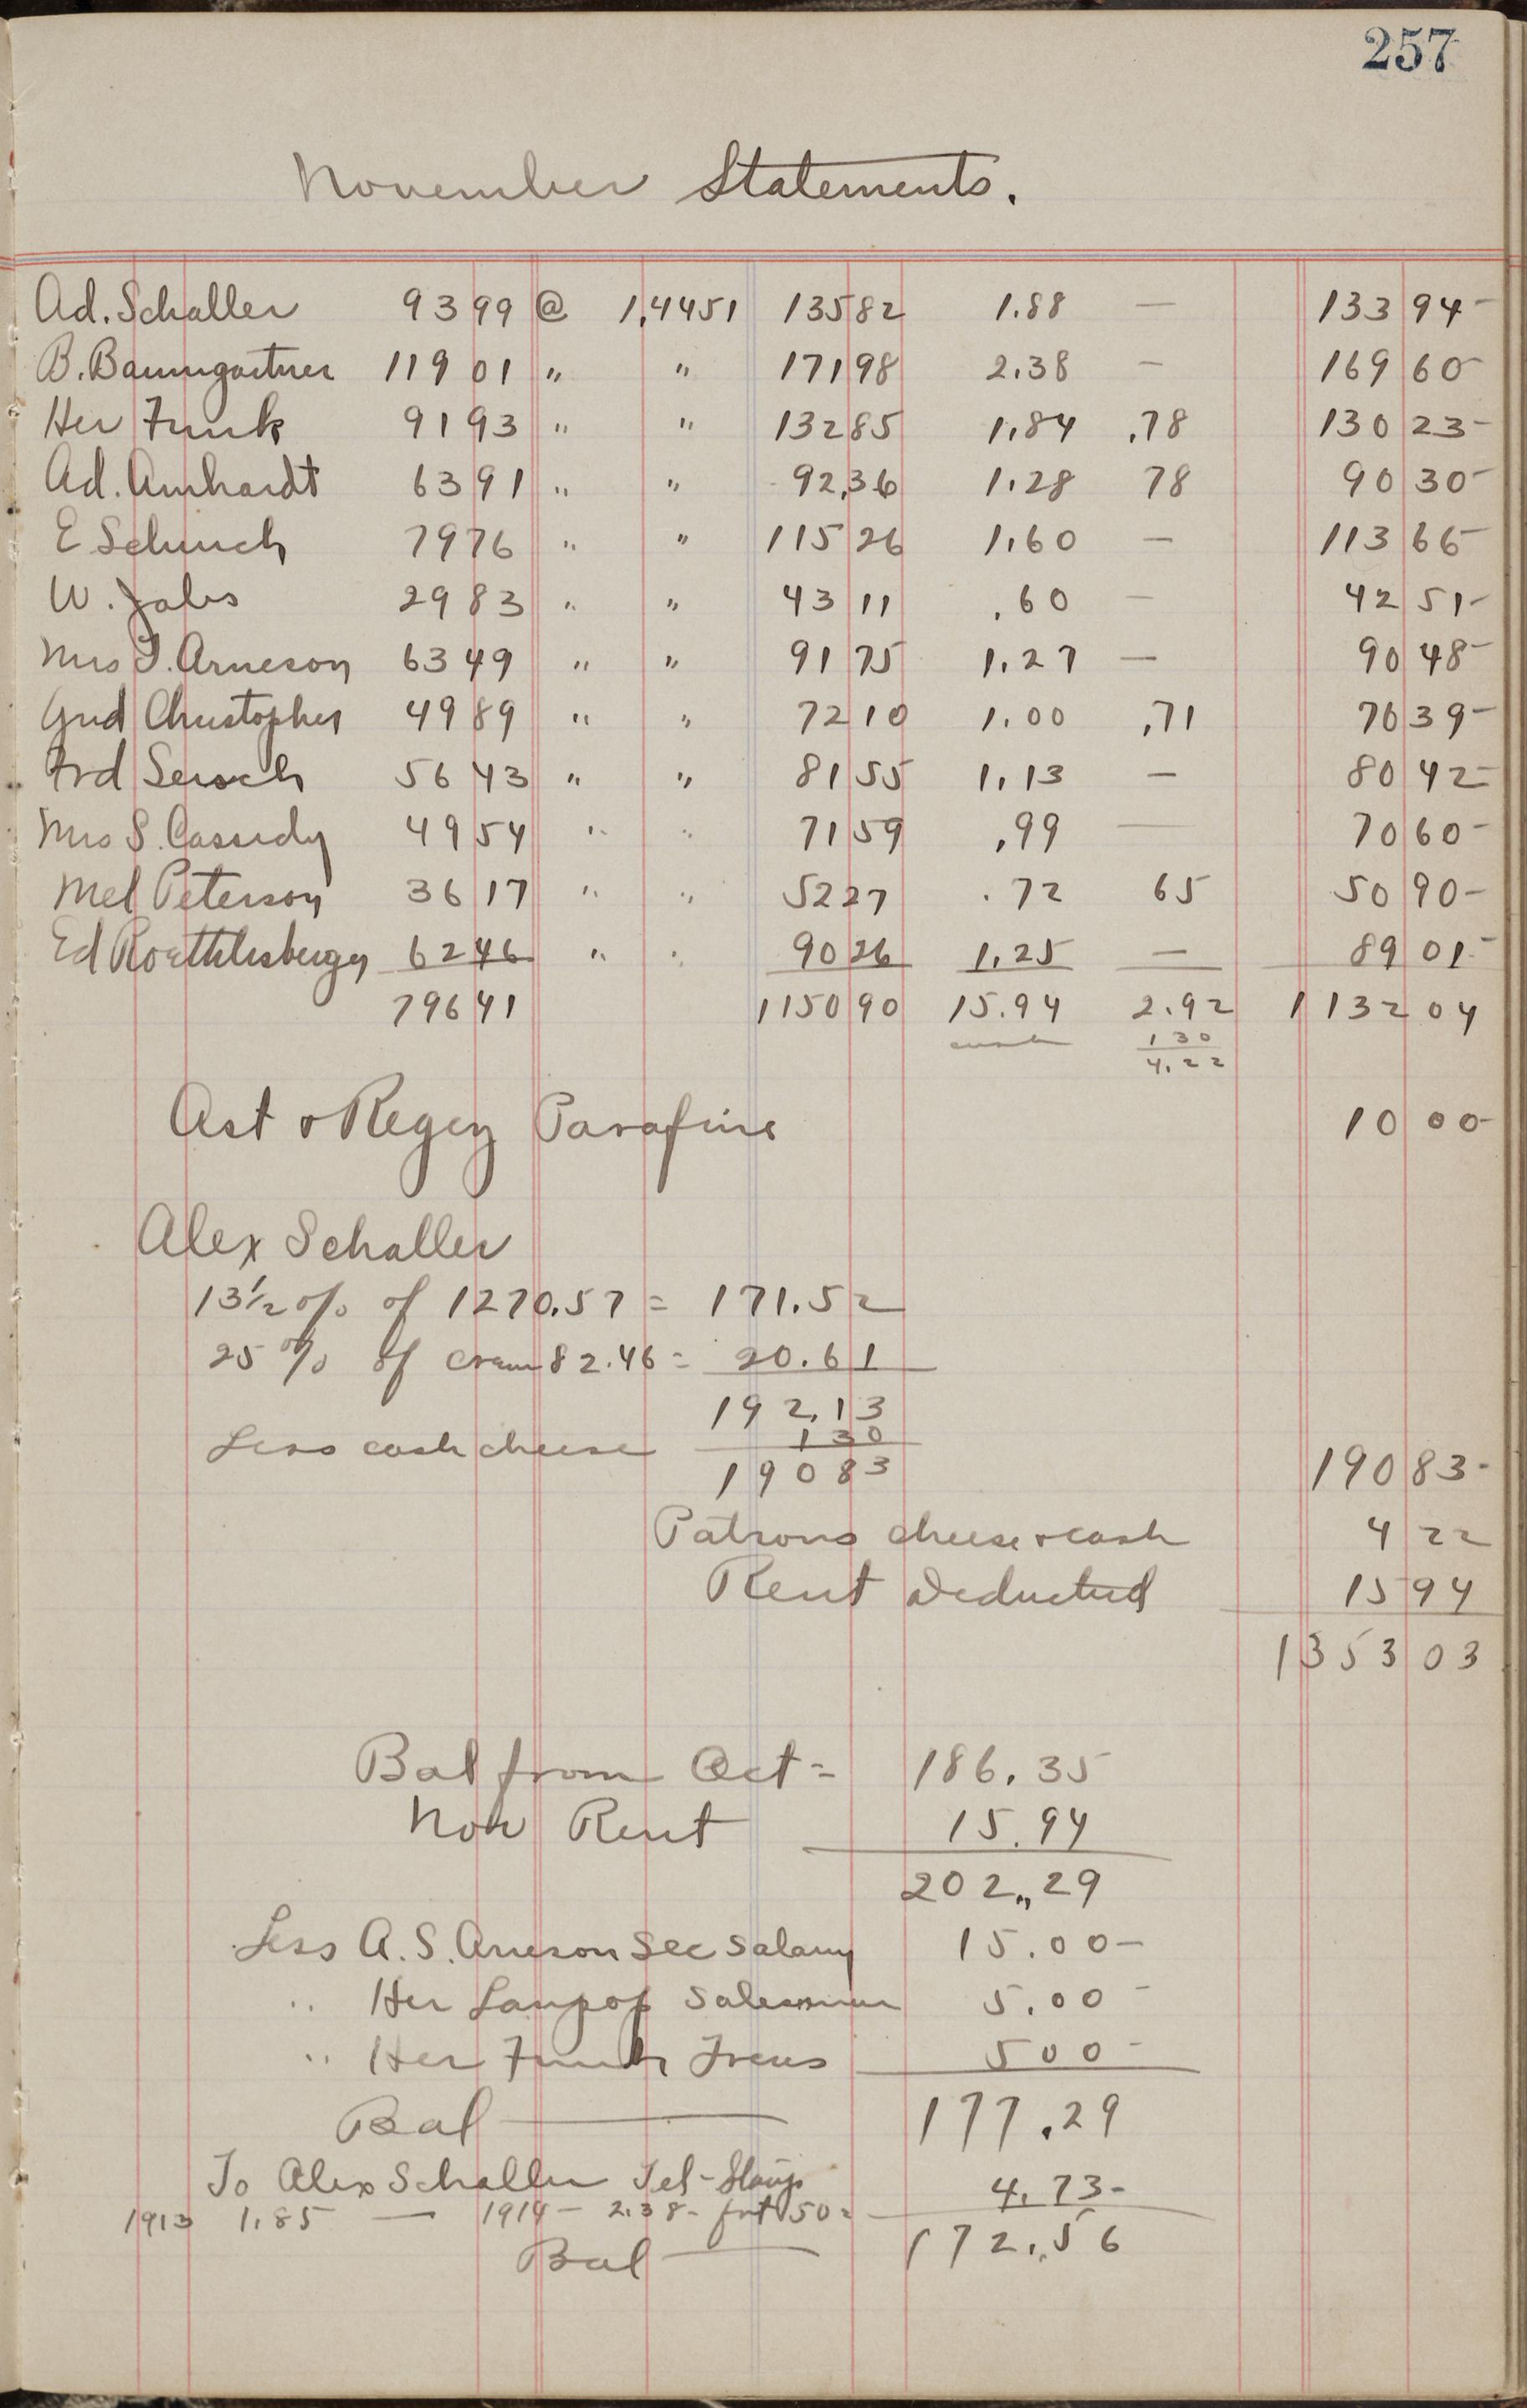 257
November Statements.
Ad. Schaller 9399 @ 1,4451 13582 1.88 — 133 94-
B. Baumgartner 11901 " " 17198 2.38 — 169 60-
Her Funk 9193 " " 13285 1.84 .78 130 23-
Ad. Amhardt 6391 " " 92,36 1.28 78 90 30-
E Schuch 7976 " " 115 26 1.60 — 113 66-
W. Jabs 2983 " " 43 11 .60 — 42 51-
Mrs J. Arneson 6349 " " 91 75 1.27 — 90 48-
Gud Christopher 4989 " " 72 10 1.00 .71 70 39-
Frd Sersch 5643 " " 81 55 1.13 — 80 42-
Mrs S. Cassidy 4954 " " 71 59 .99 — 70 60-
Mel Peterson 3617 " " 52 27 .72 65 50 90-
Ed Roethlisberger 6246 " " 90 26 1.25 — 89 01-
79641 1150 90 15.94 2.92 1132 04
130
4.22
Ast & Regez Parafine 10 00-
Alex Schaller
13 1/2 % of 1270.57 = 171.52
25 % of cream 82.46 = 20.61
192,13
Less cash cheese 130
190 83 190 83-
Patrons cheese & cash 4 22
Rent Deducted 15 94
1353 03
Bal from Oct = 186.35
Nov Rent 15.94
202,,29
Less A. S. Arneson Sec Salary 15.00-
" Her Lanzop Salesman 5.00-
" Her Funk Treus 500-
Bal — 177.29
To Alex Schaller Tel-Stamps 4.73-
1913 1.85 — 1914 - 2.38 - frt 50 =
Bal — 172.56